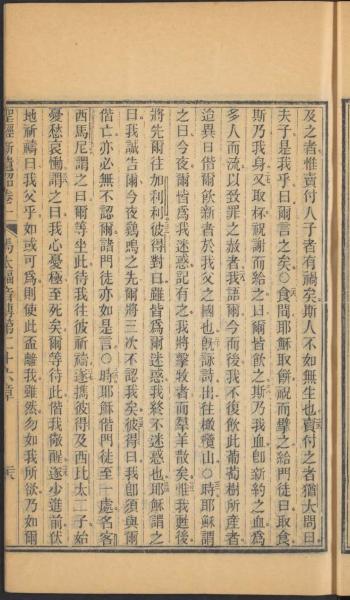 及之者惟賣付人子者有禍矣斯人不如無生也賣付之者猶大問曰
夫子是我乎曰爾言之矣○食間耶穌取餅祝而擘之給門徒曰取食
斯乃我身又取杯祝謝而給之曰爾皆飲之斯乃我血卽新約之血爲
多人而流以致罪之赦者我語爾今而後我不復飲此葡萄樹所產者
迨異日偕爾飲新者於我父之國也旣詠詩出往橄欖山○時耶穌謂
之曰今夜爾皆爲我迷惑記有之我將擊牧者而羣羊散矣惟我甦後
將先爾往加利利彼得對曰雖皆爲爾迷惑我終不迷惑也耶穌謂之
曰我誠告爾今夜鷄鳴之先爾將三次不認我矣彼得曰我卽須與爾
偕亡亦必無不認爾諸門徒亦如是言○時耶穌偕門徒至一處名客
西馬尼謂之曰爾等坐此待我往彼祈禱遂攜彼得及西比太二子始
憂愁哀慟謂之曰我心憂極至死矣爾等待此偕我儆醒遂少進前伏
地祈禱曰我父乎如或可爲則使此盃離我雖然勿如我所欲乃如爾
聖經新遺詔卷一 馬太福音傳第二十六章